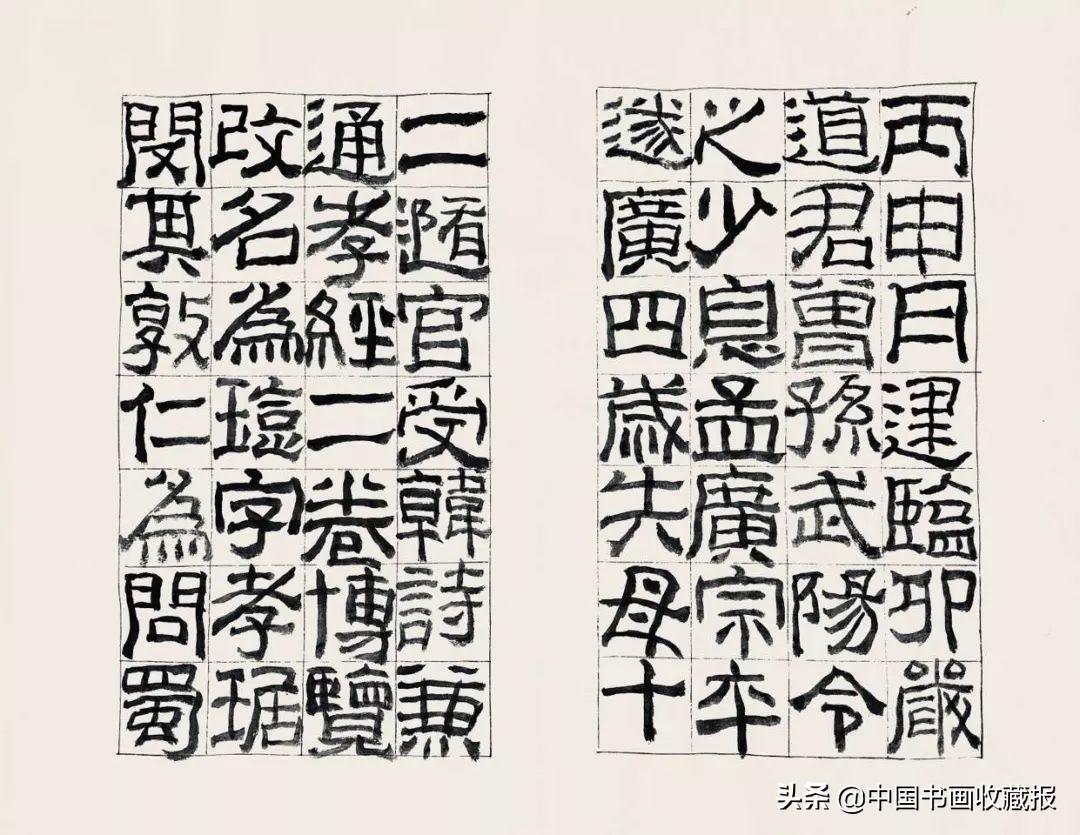 丙申月建臨卯嚴
道君曾孫武陽令
之少息孟廣宗卒
遂廣四歲失母十
二隨官受韓詩兼
通孝經二卷博覽
改名為琁字孝琚
閔其敦仁為問蜀
头条 @中国书画收藏报